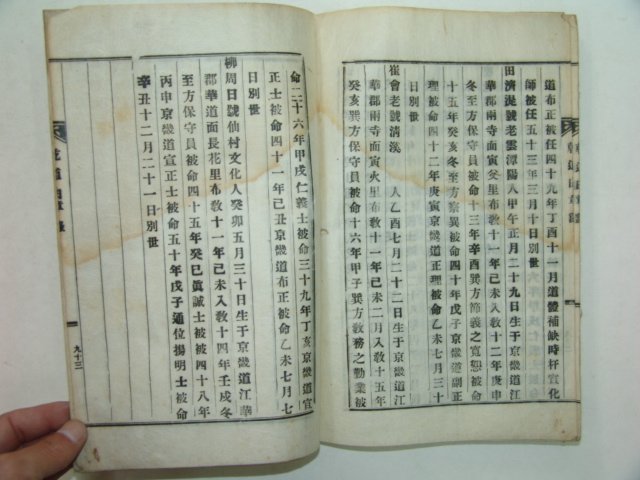 道布正被任四十九年丁酉十一月道體補缺時杆宣化
師被任五十三年三月十日別世
田濟浞號老雲潭陽人甲午正月二十九日生于京畿道江
華郡兩寺面寅火里布教十一年己未入教十二年庚申
冬至方保守員被命十三年辛酉巽方節義之寬恕被命
十五年癸亥冬至方察巽被命四十年戊子京畿道副正
理被命四十二年庚寅京畿道正理被命乙未七月三十
崔會老號清溪 人乙酉七月二十二日生于京畿道江
華郡兩寺面寅火里布教十一年己未二月入教十五年
癸亥巽方保守員被命十六年甲子巽方教務之勤業被
命二十六年甲戌仁義士被命三十九年丁亥京畿道宣
正士被命四十一年己丑京畿道布正被命乙未七月七
日別世
柳周日號仙村文化人癸卯五月三十日生于京畿道江華
郡華道面長花里布教十一年己未入教十四年壬戌冬
至方保守員被命四十四年癸巳眞誠士被命四十八年
丙申京畿道宣正士被命五十年戊子通位揚明士被命
辛丑十二月二十一日別世
九十三